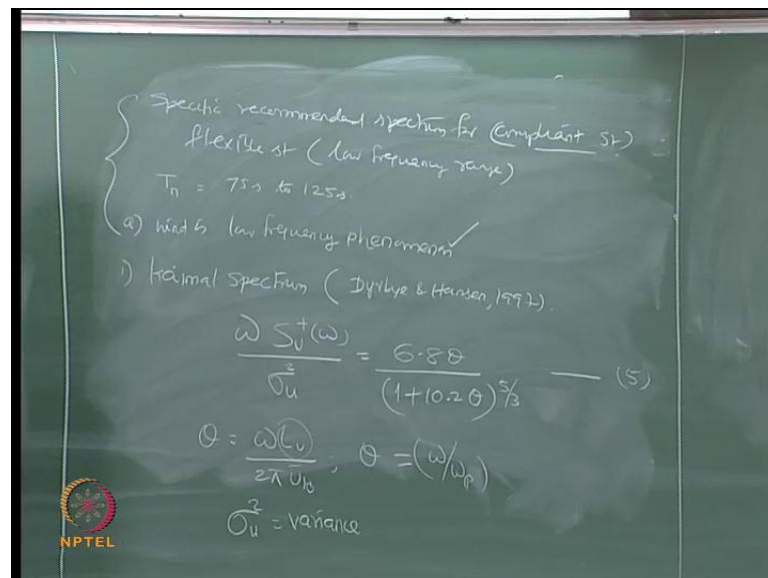 Specific recommended spectrum for (compliant st)
flexible st (low frequency range)
Tn = 75s to 125s.
a) wind is low frequency phenomenon ✓
1) Kaimal spectrum (Dyrbye & Hansen, 1997).
ω Su⁺(ω) / σu² = 6.8θ / (1+10.2θ)^5/3 —— (5)
θ = ωLu / 2π Ū10 ; θ = (ω/ωp)
σu² = variance
NPTEL